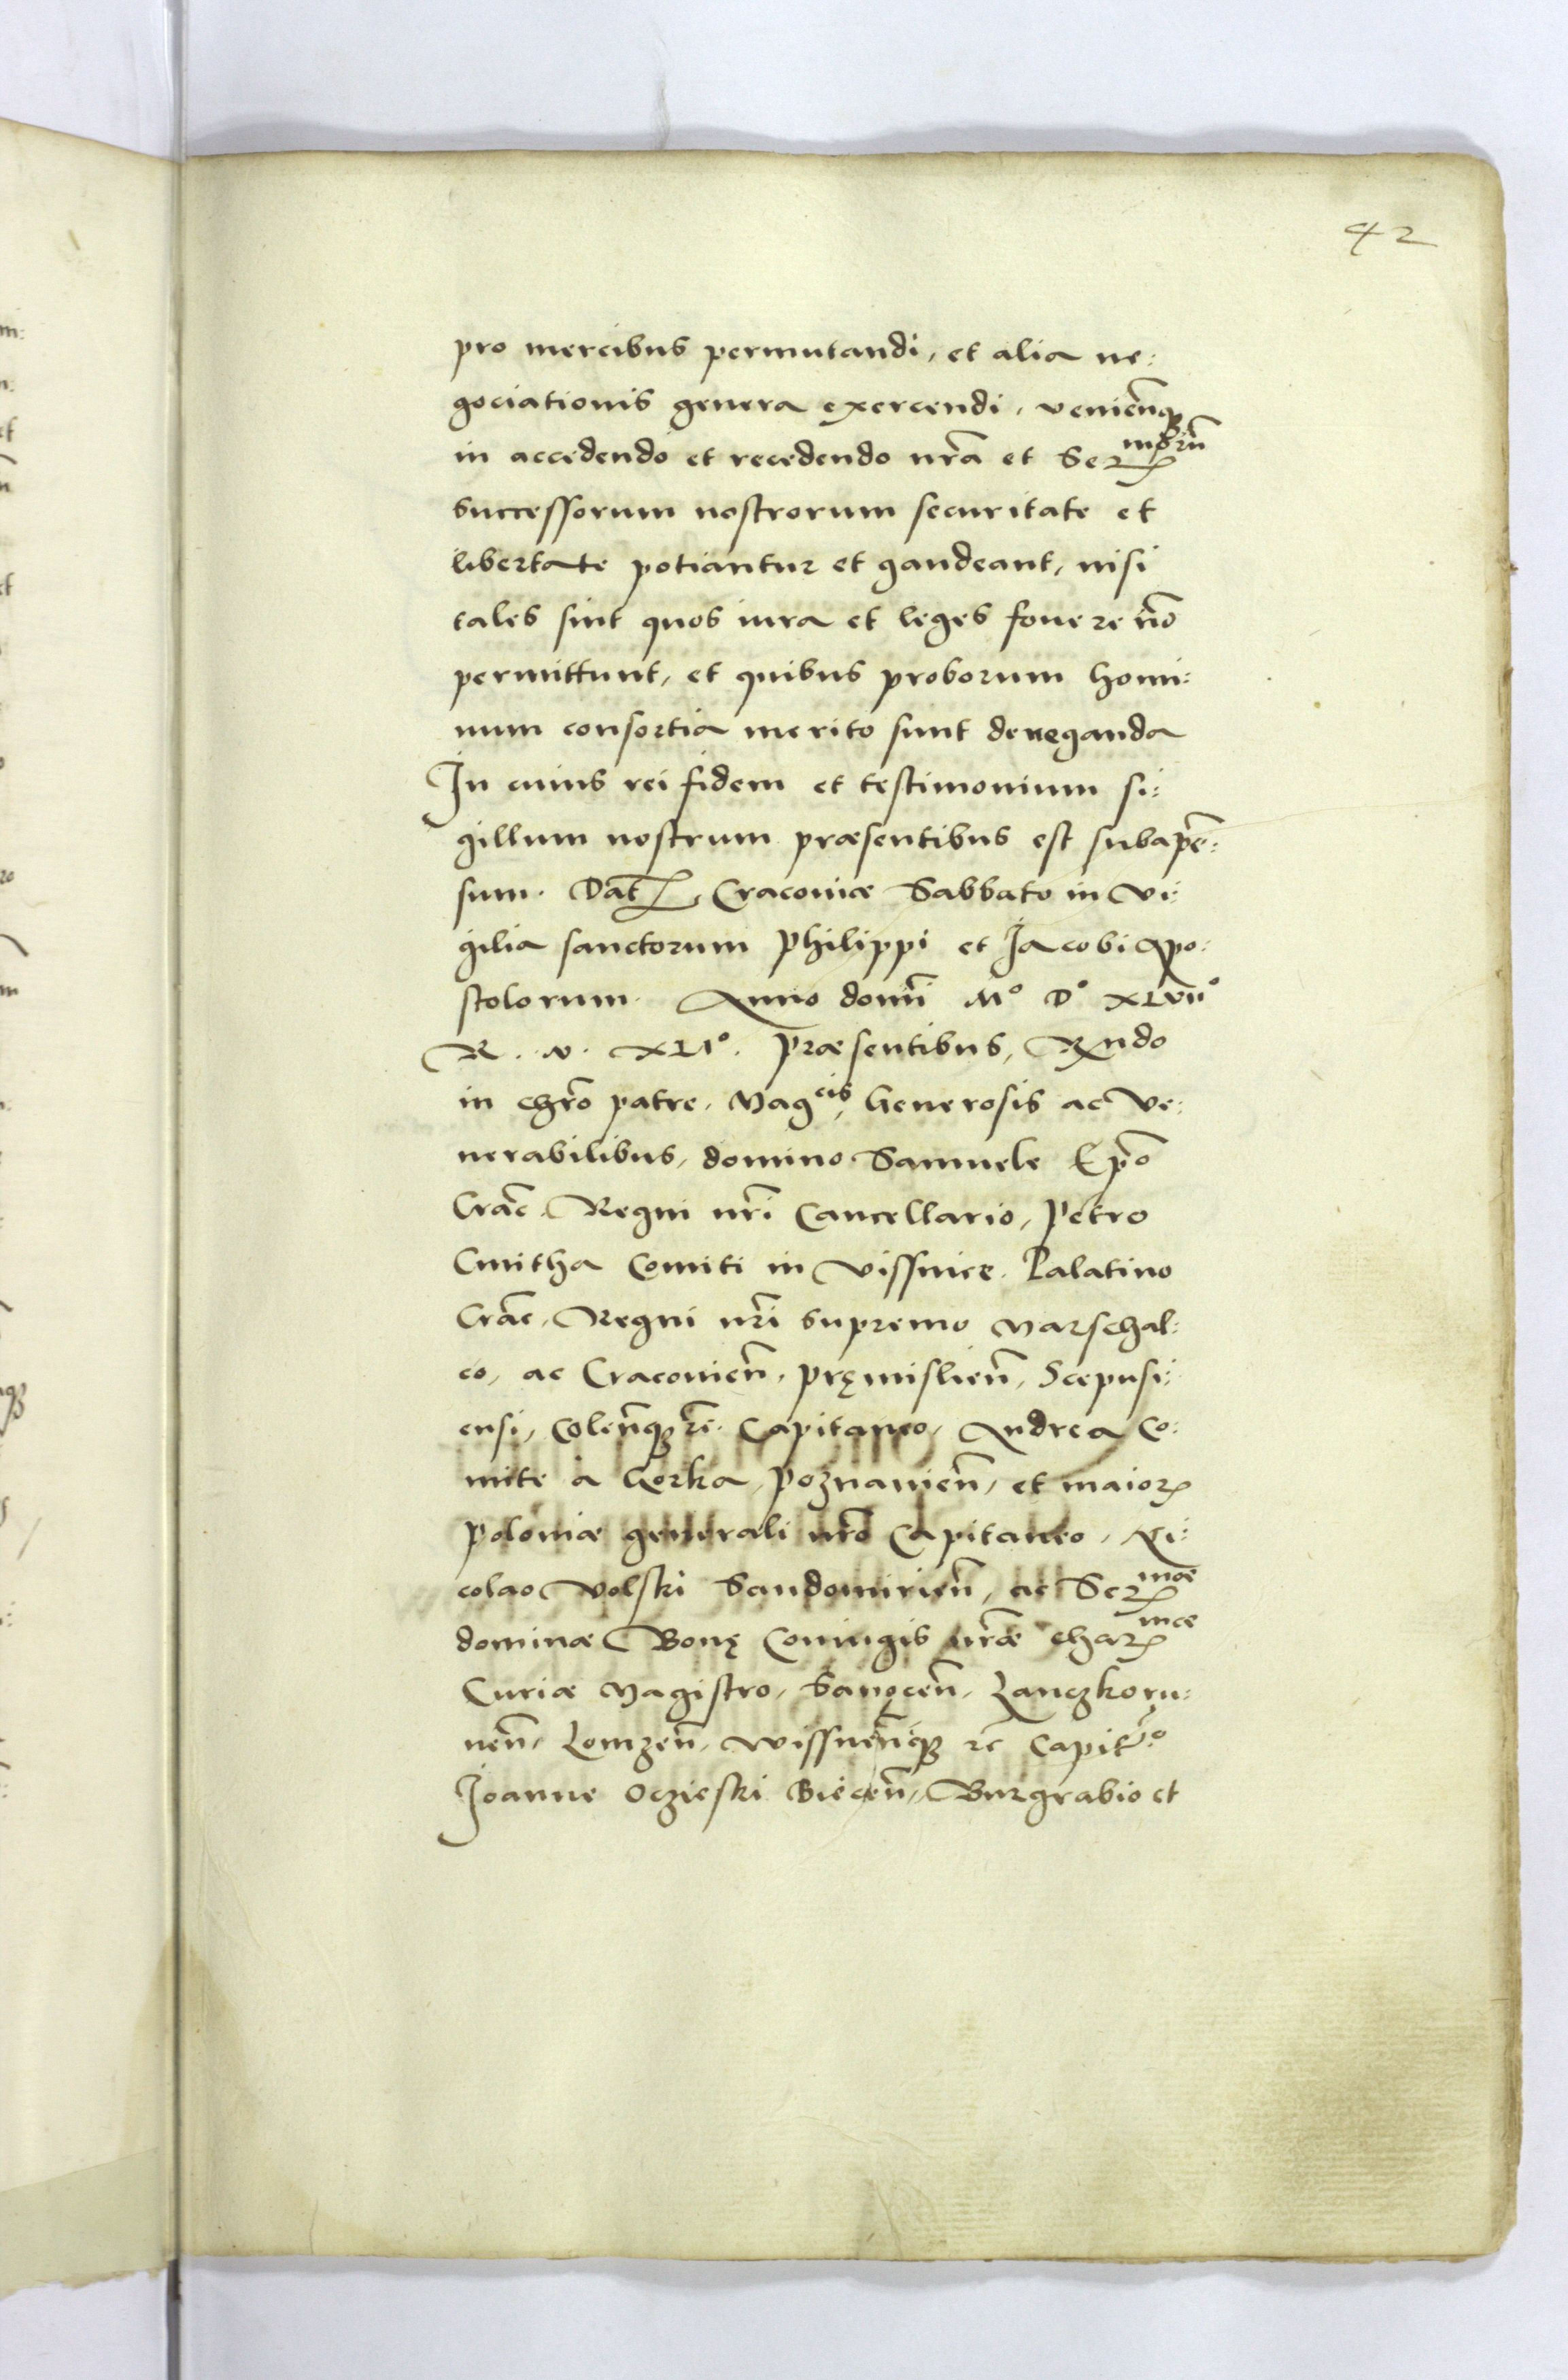 42
pro mercibus permutandi, et alia ne:
gociationis genera exercendi, venienq̃ꝫ
in accedendo et recedendo nr̃a et Ser morũ
successorum nostrorum securitate et
libertate potiantur et gaudeant, nisi
tales sint quos iura et leges fouere nõ
permittunt, et quibus proborum homi:
num consortia merito sunt deneganda
In cuius rei fidem et testimonium si:
gillum nostrum præsentibus est subapẽ:
sum. Dat̃ Cracoviæ Sabbato in Vi:
gilia sanctorum Philippi et Jacobi Apo:
stolorum. Anno domĩ Mº Dº XLVIIº
R. N. XLIº. Præsentibus, Rṉdo
in chr̃o patre, Mag cis, Generosis ac Ve:
nerabilibus, domino Samuele Ep̃o
Crac̃. Regni nr̃i Cancellario, Petro
Cmitha Comiti in Vissnice. Palatino
Crac̃, Regni nr̃i supremo Marschal:
co, ac Cracovien̄, Pręmislien̄, Scepusi:
ensi, Colen̄qꝫ r̃e. Capitaneo, Andrea Co:
mite a Gorka, Poznanien̄, et maior
Poloniæ generali nr̃o Capitaneo, Ni:
colao Volski Sandomirien̄, ac Ser mæ
dominæ Bonę Coniugis nr̃æ char mæ
Curiæ Magistro, Sanocen̄, Lanczkoru:
nen̄, Lomzen̄, Wissnen̄qꝫ rc̃ Capit̃º
Joanne Oczieski Biecen̄, Burgrabio et